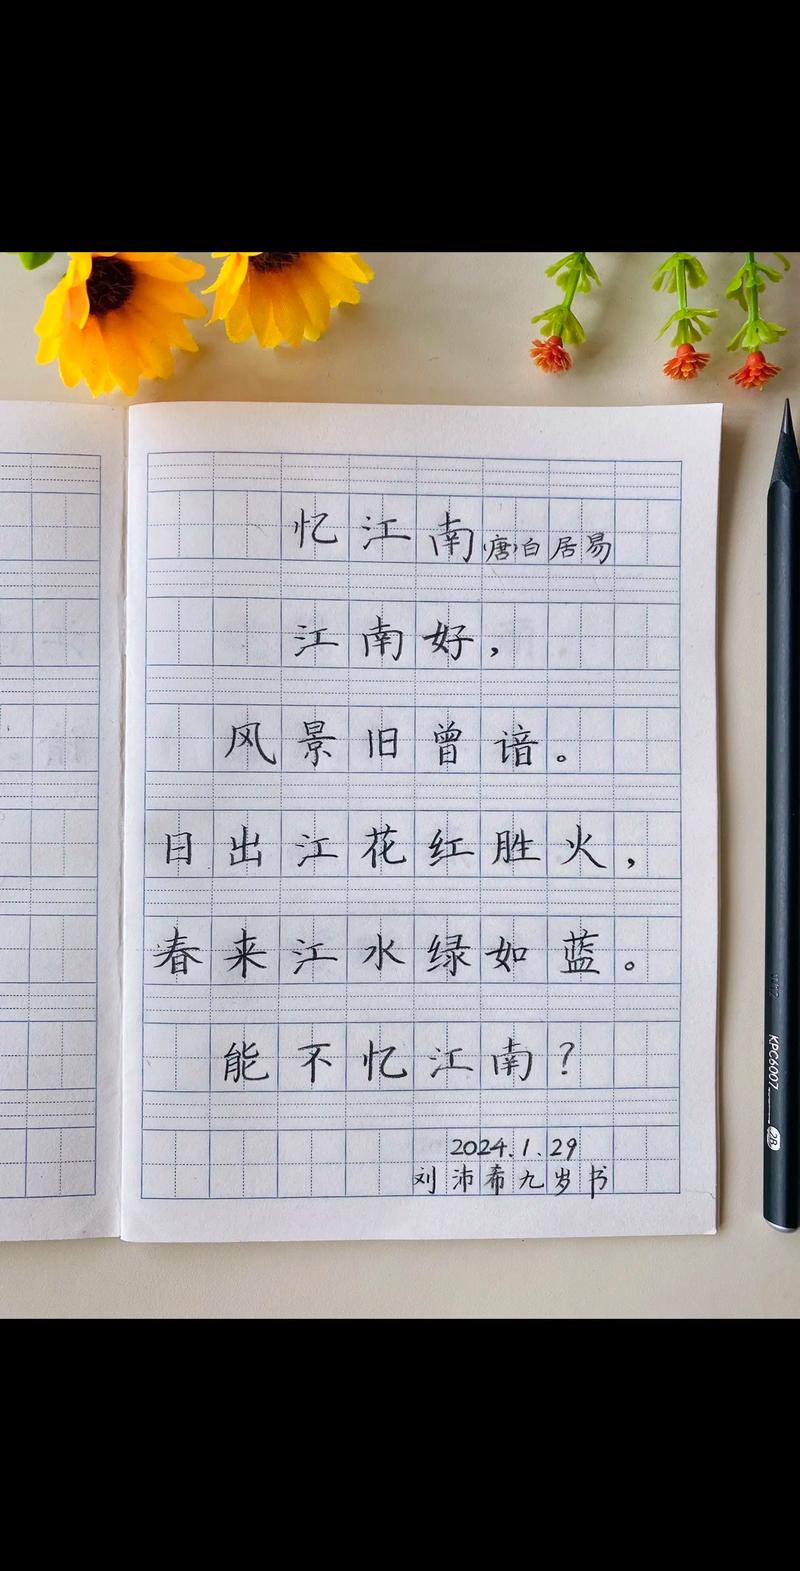 忆江南(唐)白居易
江南好，
风景旧曾谙。
日出江花红胜火，
春来江水绿如蓝。
能不忆江南？
2024.1.29
刘沛希九岁书
KPC6007 2B